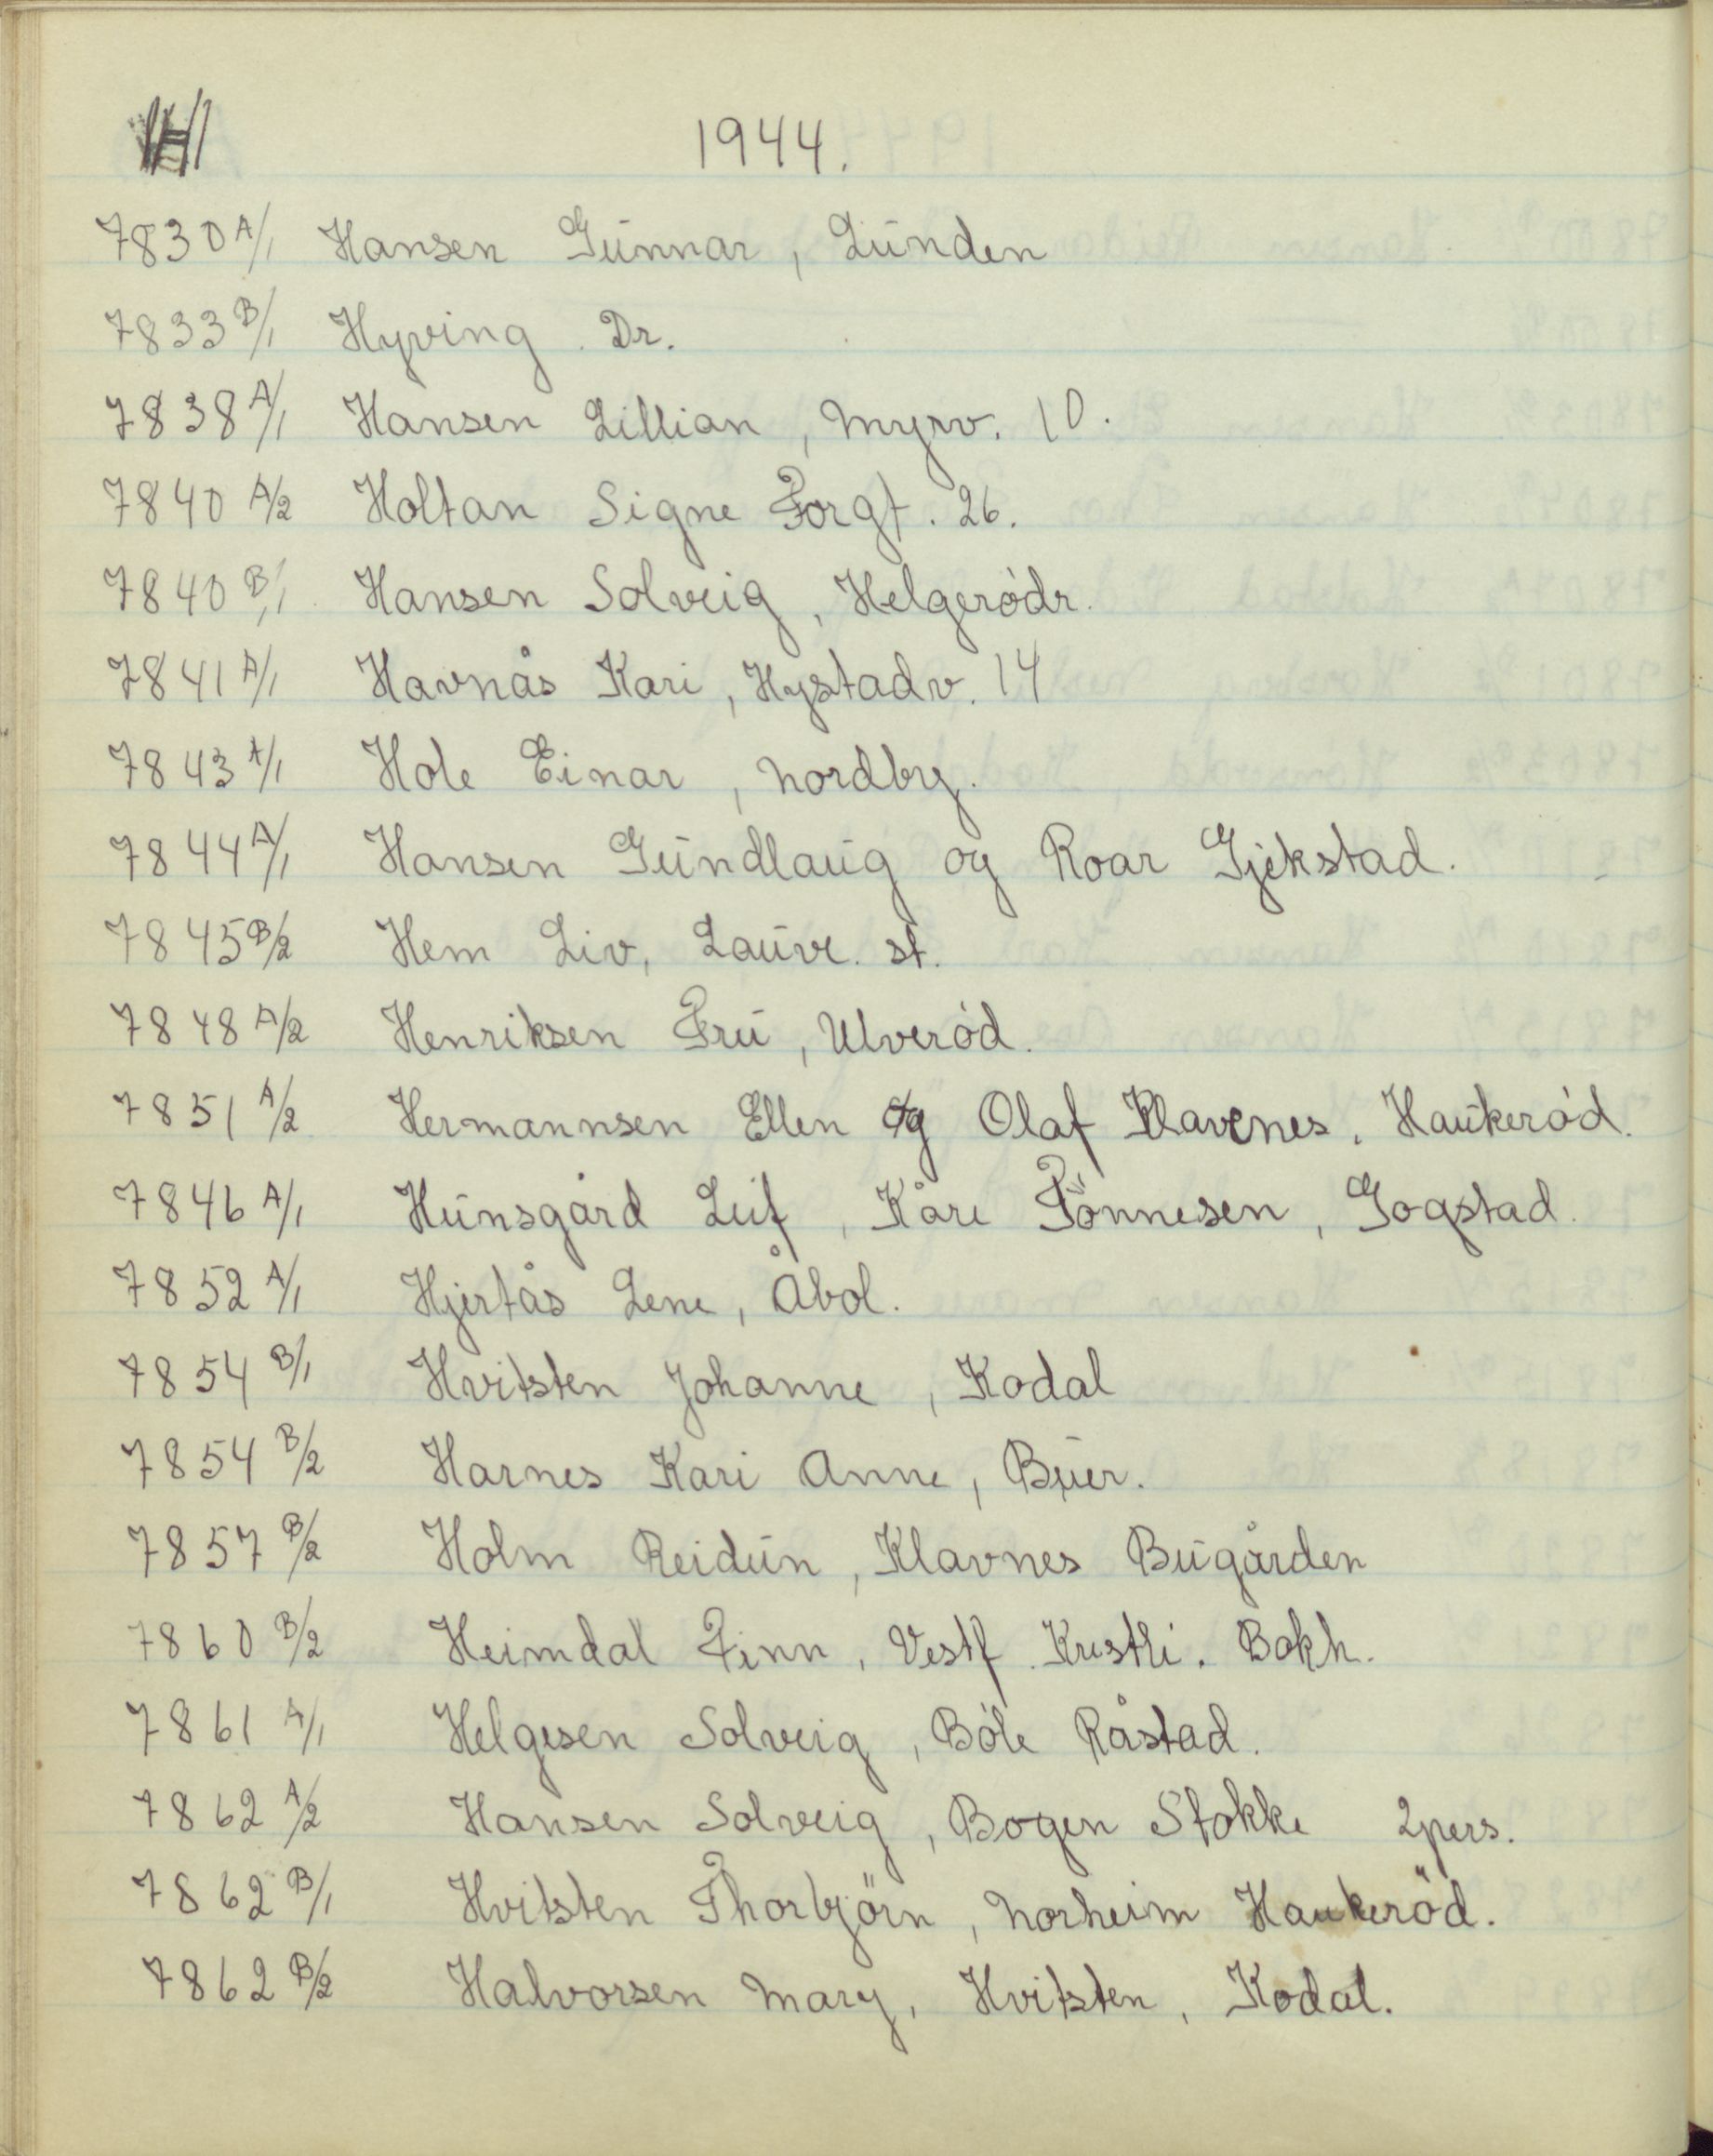 H 1944.
7830 A/1 Hansen Gunnar, Lunden
7833 B/1 Hyving Dr.
7838 A/1 Hansen Lillian, Myrv. 10.
7840 A/2 Holtan Signe Torgt. 26.
7840 B/1 Hansen Solveig, Helgerödr.
7841 A/1 Havnås Kari, Hystadv. 14
7843 A/1 Hole Einar, Nordby.
7844 A/1 Hansen Gundlaug og Roar Gjekstad.
7845 B/2 Hem Liv, Lauve st.
7848 A/2 Henriksen Fru, Ulveröd.
7851 A/2 Hermannsen Ellen og Olaf Klavenes, Haukeröd.
7846 A/1 Hunsgård Leif, Kåre Tönnesen, Gogstad.
7852 A/1 Hjertås Lene, Åbol.
7854 B/1 Hvitsten Johanne, Kodal
7854 B/2 Harnes Kari Anne, Buer.
7857 B/2 Holm Reidun, Klavnes Bugården
7860 B/2 Heimdal Finn, Vestf. Kristli. Bokh.
7861 A/1 Helgesen Solveig, Böle Råstad.
7862 A/2 Hansen Solveig, Bogen Stokke 2pers.
7862 B/1 Hvitsten Thorbjörn, Norheim Haukeröd.
7862 B/2 Halvorsen Mary, Hvitsten, Kodal.